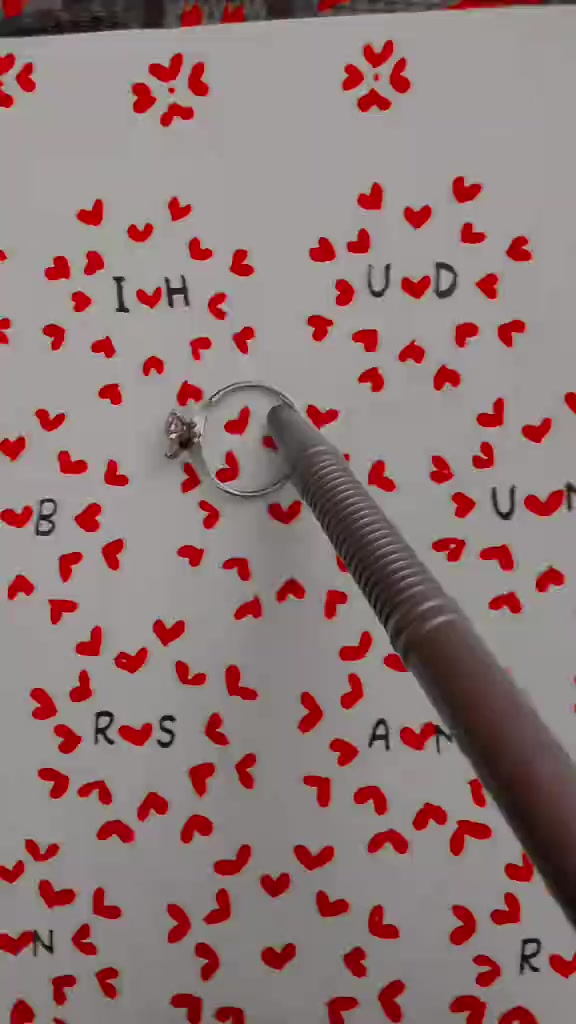 I❤H
U❤D
❤B
U❤N
R❤S
A❤N
❤N
R❤